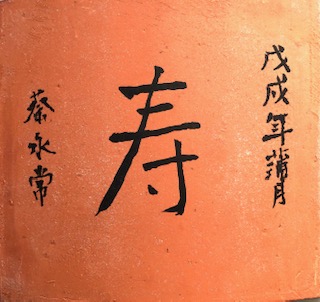 戊戌年蒲月
寿
蔡永常